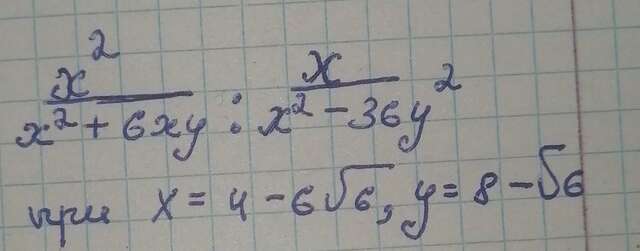 x²/(x² + 6xy) : x/(x² − 36y²)
при x = 4 − 6√6, y = 8 − √6